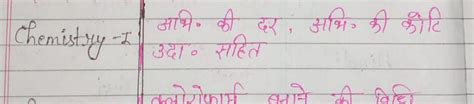 Chemistry-I
अभि॰ की दर, अभि॰ की कोटि
उदा॰ सहित
क्लोरोफार्म बनाने की विधि